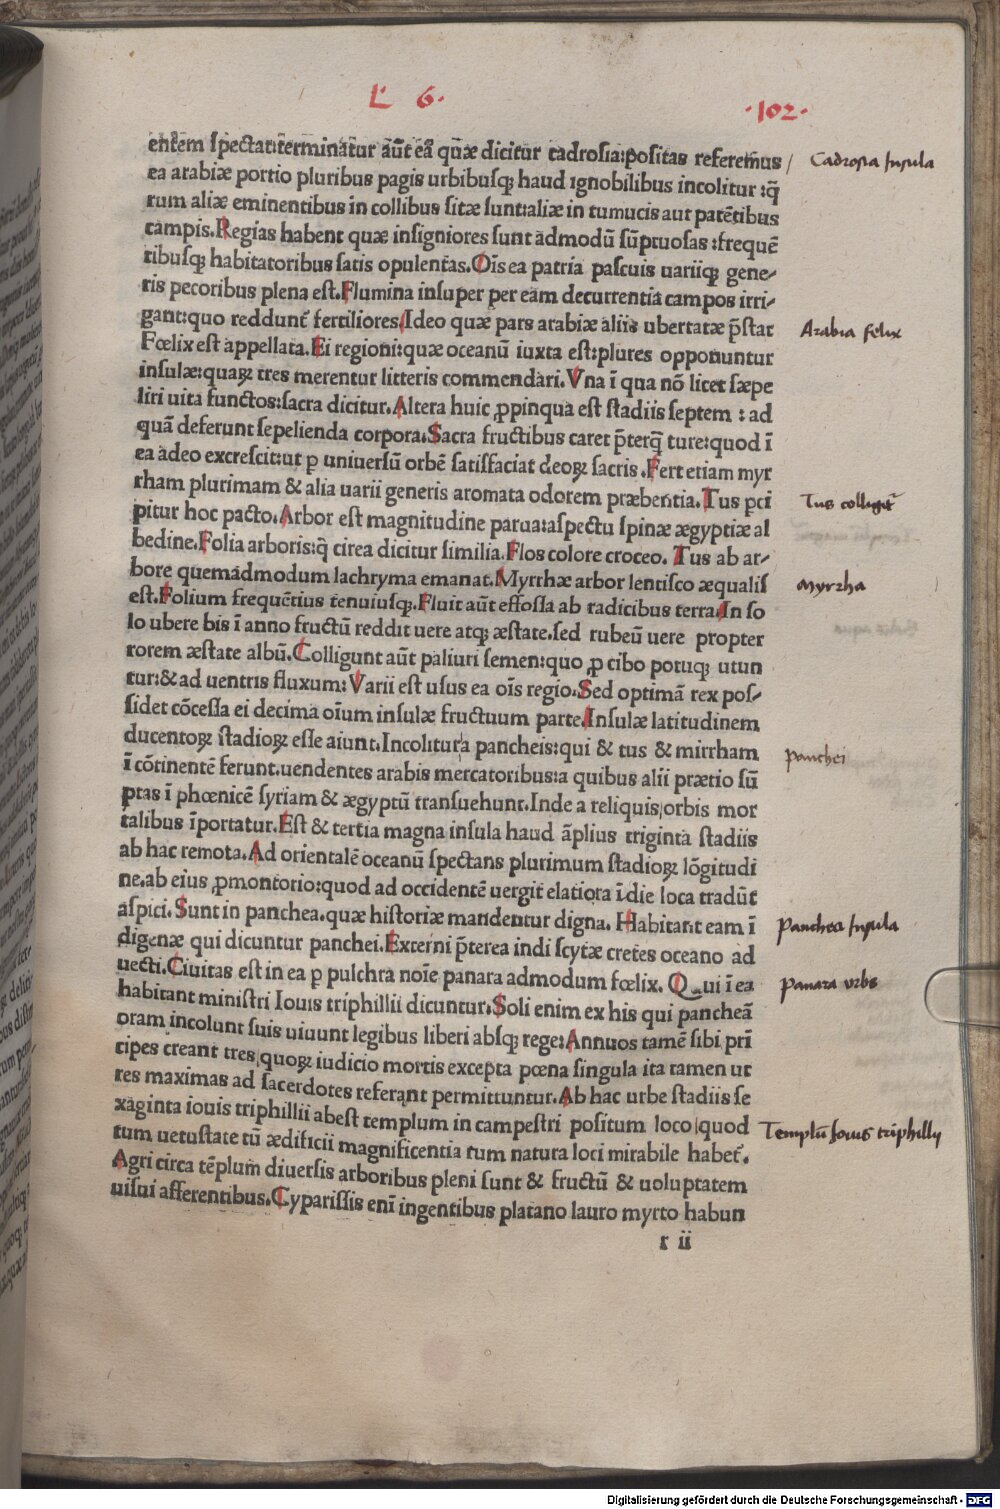 L. 6.
·102·
entem spectat:terminatur aūt ea quæ dicitur cadrosia:positas referemus
Cadrosia Insula
ea arabiæ portio pluribus pagis urbibusq; haud ignobilibus incolitur :q̄
rum aliæ eminentibus in collibus sitæ sunt:aliæ in tumucis aut patētibus
campis.Regias habent quæ insigniores sunt admodū sūptuosas :frequē
tibusq; habitatoribus satis opulentas.Oīs ea patria pascuis uariiq; gene-
ris pecoribus plena est.Flumina insuper per eam decurrentia campos irri-
gant:quo reddunt̄ fertiliores.Ideo quæ pars arabiæ aliis ubertatæ p̄stat
Arabia felix
Fœlix est appellata.Ei regioni:quæ oceanū iuxta est:plures opponuntur
insulæ:quaꝝ tres merentur litteris commendari.Vna ī qua nō licet sæpe
liri uita functos:sacra dicitur.Altera huic ꝓpinqua est stadiis septem : ad
quā deferunt sepelienda corpora.Sacra fructibus caret p̄terq̄ ture:quod ī
ea adeo excrescit:ut ꝑ uniuersū orbē satisfaciat deoꝝ sacris .Fert etiam myr
rham plurimam & alia uarii generis aromata odorem præbentia.Tus ꝑci
Tus colligit̄
pitur hoc pacto.Arbor est magnitudine parua:aspectu spinæ ægyptiæ al
bedine.Folia arboris:q̄ cirea dicitur similia.Flos colore croceo. Tus ab ar-
bore quemadmodum lachryma emanat.Myrrhæ arbor lentisco æqualis
Myrzha
est.Folium frequētius tenuiusq;.Fluit aūt effossa ab radicibus terra.In so
lo ubere bis ī anno fructū reddit uere atq; æstate.sed rubeū uere propter
rorem æstate albū.Colligunt aūt paliuri semen:quo ꝓ cibo potuq; utun
tur:& ad uentris fluxum:Varii est usus ea oīs regio.Sed optimā rex pos-
sidet cōcessa ei decima oīum insulæ fructuum parte.Insulæ latitudinem
ducentoꝝ stadioꝝ esse aiunt.Incolitur a pancheis:qui & tus & mirrham
Panchei
ī cōtinentē ferunt.uendentes arabis mercatoribus:a quibus alii prætio sū
ptas ī phœnicē syriam & ægyptū transuehunt.Inde a reliquis orbis mor
talibus īportatur.Est & tertia magna insula haud āplius triginta stadiis
ab hac remota.Ad orientalē oceanū spectans plurimum stadioꝝ lōgitudi
ne.ab eius ꝓmontorio:quod ad occidentē uergit elatiora īdie loca tradūt
aspici.Sunt in panchea.quæ historiæ mandentur digna. Habitant eam ī
Panchea Insula
digenæ qui dicuntur panchei.Externi p̄terea indi scytæ cretes oceano ad
uecti.Ciuitas est in ea ꝑ pulchra noīe panara admodum fœlix. Qui ī ea
Panara vrbs
habitant ministri Iouis triphillii dicuntur.Soli enim ex his qui pancheā
oram incolunt suis uiuunt legibus liberi absq; rege:Annuos tamē sibi prī
cipes creant tres quoꝝ iudicio mortis excepta pœna singula ita tamen ut
res maximas ad sacerdotes referant permittuntur.Ab hac urbe stadiis se
xaginta iouis triphillii abest templum in campestri positum loco quod
Templū Iouis triphillij
tum uetustate tū ædificii magnificentia tum natura loci mirabile habet̄.
Agri circa tēplum diuersis arboribus pleni sunt & fructū & uoluptatem
uisui afferentibus.Cyparissis enī ingentibus platano lauro myrto habun
r ii
Digitalisierung gefördert durch die Deutsche Forschungsgemeinschaft - DFG